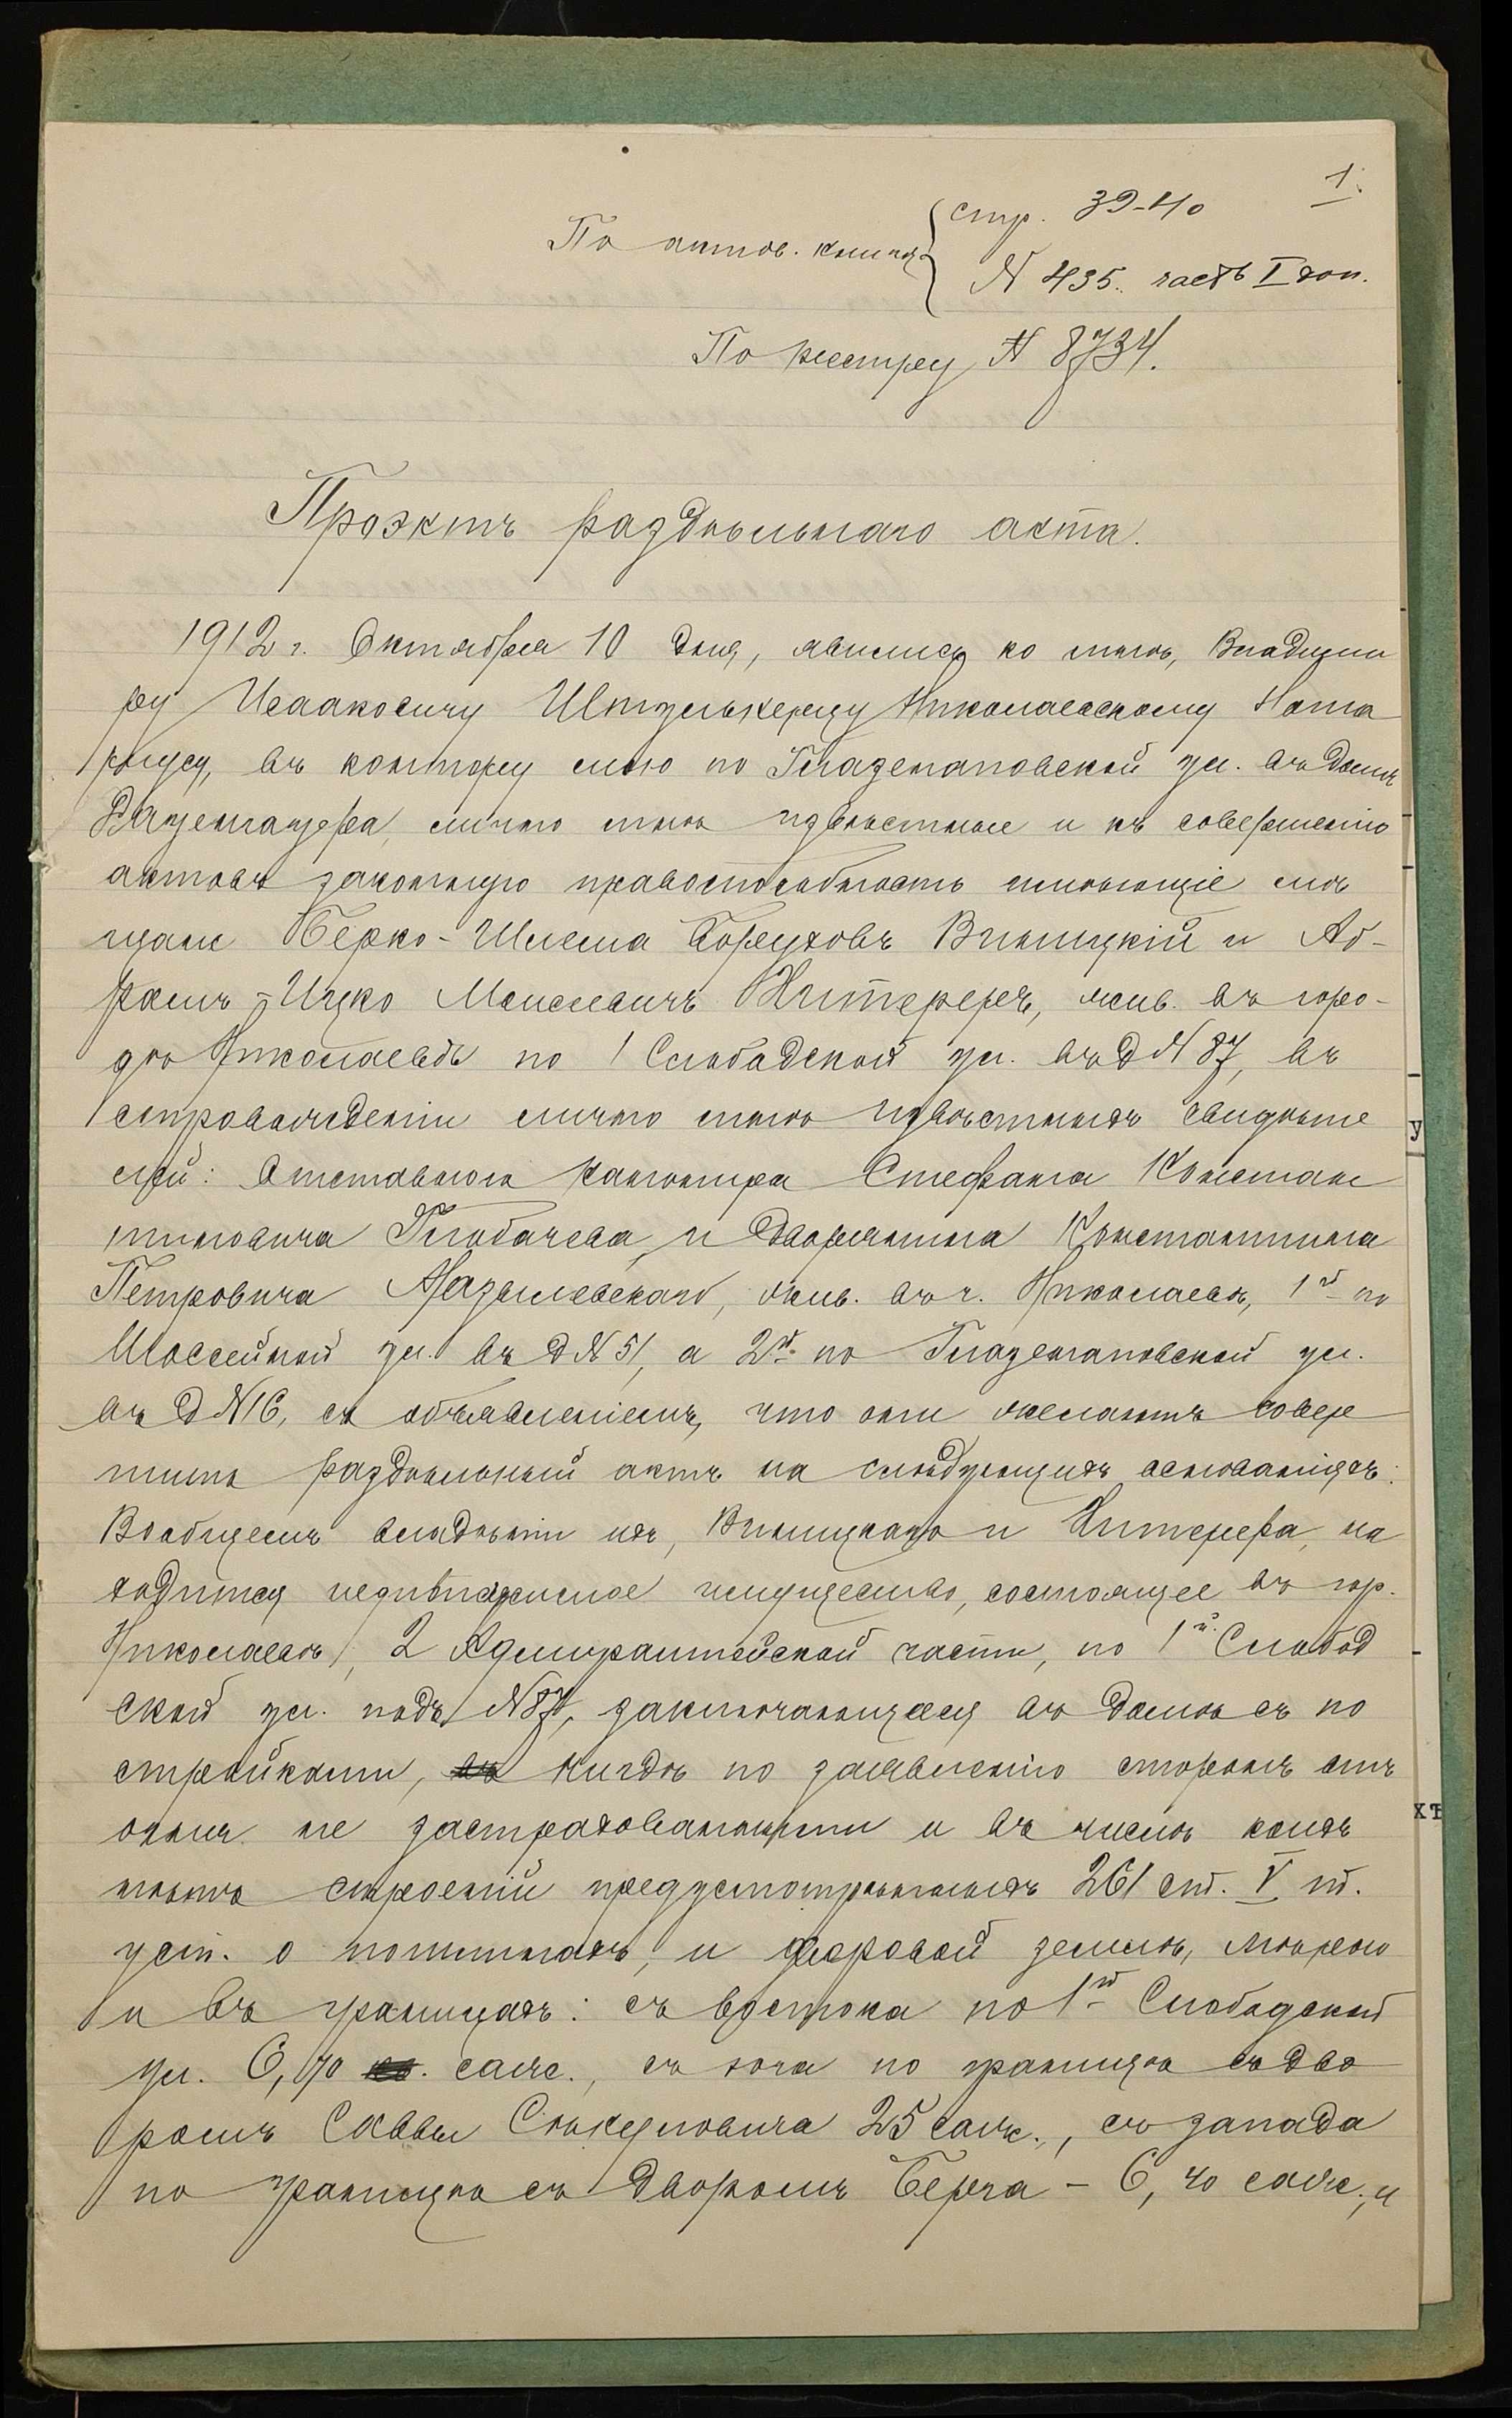 1.
По актов. книгѣ { стр. 39-40
№ 435. часть I доп.
По реестру № 8734.
Проэктъ раздѣльнаго акта.
1912 г. Октября 10 дня, явились ко мнѣ, Владими
ру Исааковичу Штулькерцу Николаевскому Нота
ріусу, въ контору мою по Глазенаповской ул. въ домѣ
лично мнѣ извѣстные и къ совершенію
актовъ законную правоспособность имѣющіе мѣ
щане Берко-Шлема Боруховъ Виницкій и Аб-
рамъ-Ицко Моисеевичъ Хитереръ, жив. въ горо-
дѣ Николаевѣ по 1 Слободской ул. въ д № 87, въ
сопровожденіи лично мнѣ извѣстныхъ свидѣте
лей: Отставного канонира Стефана Констан
тиновича Глобачева и Дворянина Константина
Петровича жив. въ г. Николаевѣ, 1й по
Шоссейной ул. въ д № 51, а 2й по Глазенаповской ул.
въ д № 16, съ объявленіемъ, что они желаютъ совер
шить раздѣльный актъ на слѣдующихъ основаніяхъ:
Вообщемъ владѣніи ихъ, Виницкаго и Хитерера, на
ходится недвижимое имущество, состоящее въ гор.
Николаевѣ, 2 Адмиралтейской части, по 1й Слобод
ской ул. подъ № 87, заключающееся въ домѣ съ по
стройками, нигдѣ по заявленію сторонъ отъ
огня не застрахованными и въ числѣ коихъ
нѣтъ строеній предусмотрѣнныхъ 261 ст. V т.
уст. о пошлинахъ, и дворовой землѣ, мѣрою
и въ границахъ: съ востока по 1й Слободской
ул. 6,40 саж., съ юга по границѣ съ дво
ромъ Саввы 25 саж., съ запада
по границѣ съ дворомъ Берга - 6,40 саж., и